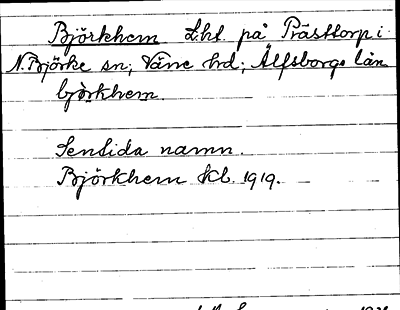 Björkhem Lht. på Prästtorp i
N. Björke sn; Väne hd; Älfsborgs län
björkhem.
Sentida namn.
Björkhem kb. 1919.